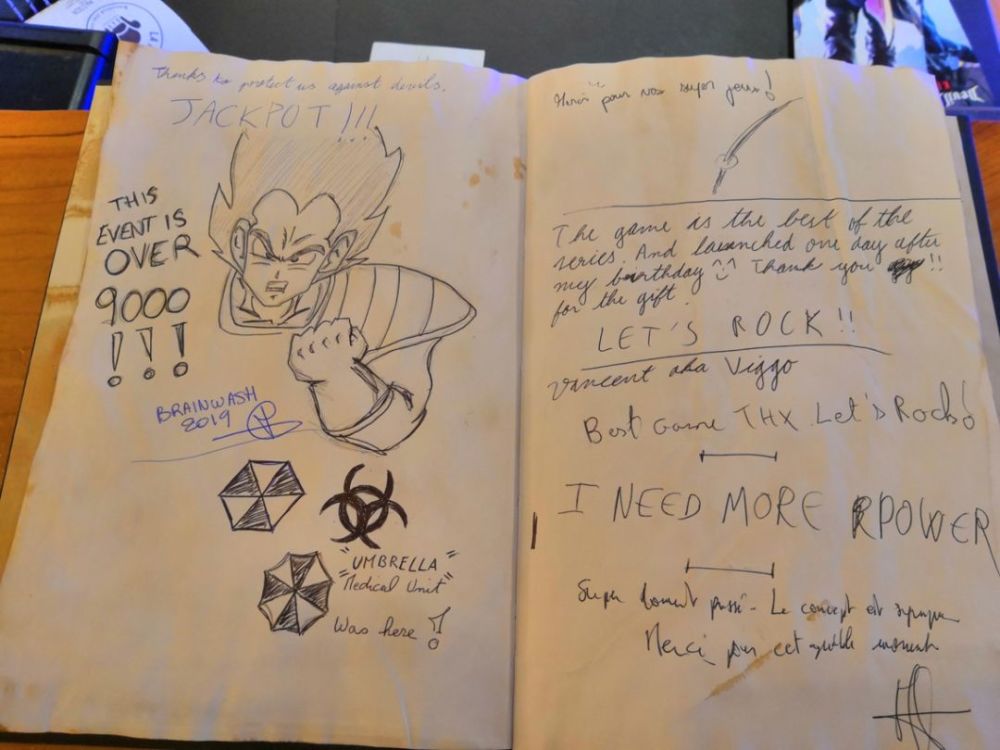 Thanks to protect us against devils.
JACKPOT!!!
THIS
EVENT IS
OVER
9000
!!!
BRAINWASH
2019
"UMBRELLA"
"Medical Unit"
Was here!
Merci pour vos super jeux!
The game is the best of the
series. And launched one day after
my birthday ^^ Thank you !!
for the gift.
LET'S ROCK!!
Vincent aka Viggo
Best Game THX. Let's Rock!
I NEED MORE POWER
Super moment passé. Le concept est sympa
Merci pour cet agréable moment